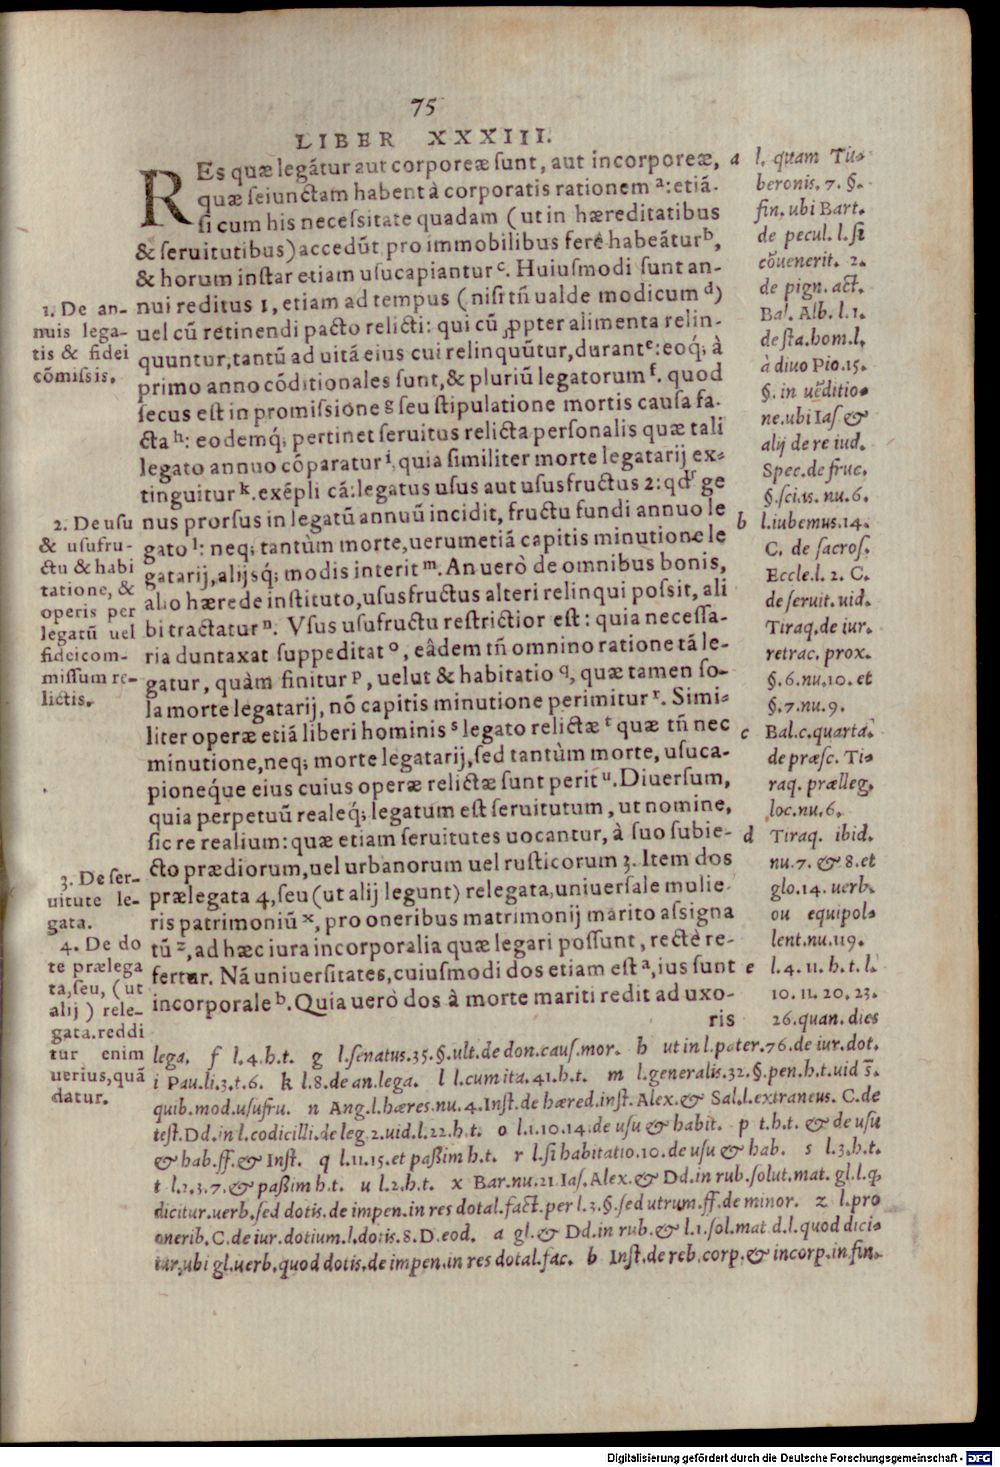 75
LIBER XXXIII.
REs quæ legãtur aut corporeæ sunt, aut incorporeæ,
quæ seiunctam habent à corporatis rationem a: etiã.
si cum his necessitate quadam (ut in hæreditatibus
& seruitutibus) accedũt, pro immobilibus ferè habeãtur b,
& horum instar etiam usucapiantur c. Huiusmodi sunt an-
nui reditus 1, etiam ad tempus (nisi tñ ualde modicum d)
uel cũ retinendi pacto relicti: qui cũ ꝓpter alimenta relin-
quuntur, tantũ ad uitã eius cui relinquũtur, durant e: eoq́; à
primo anno cõditionales sunt, & pluriũ legatorum f. quod
secus est in promissione g seu stipulatione mortis causa fa-
cta h: eodemq́; pertinet seruitus relicta personalis quæ tali
legato annuo cõparatur i, quia similiter morte legatarij ex-
tinguitur k. exẽpli cã: legatus usus aut ususfructus 2: qd' ge
nus prorsus in legatũ annuũ incidit, fructu fundi annuo le
gato l: neq; tantùm morte, uerumetiã capitis minutione le
gatarij, alijsq́; modis interit m. An uerò de omnibus bonis,
alio hærede instituto, ususfructus alteri relinqui possit, ali
bi tractatur n. Vsus usufructu restrictior est: quia necessa-
ria duntaxat suppeditat o, eâdem tñ omnino ratione tã le-
gatur, quàm finitur p, uelut & habitatio q, quæ tamen so-
la morte legatarij, nõ capitis minutione perimitur r. Simi-
liter operæ etiã liberi hominis s legato relictæ t quæ tñ nec
minutione, neq; morte legatarij, sed tantùm morte, usuca-
pioneq́ue eius cuius operæ relictæ sunt perit u. Diuersum,
quia perpetuũ realeq́; legatum est seruitutum, ut nomine,
sic re realium: quæ etiam seruitutes uocantur, à suo subie-
cto prædiorum, uel urbanorum uel rusticorum 3. Item dos
prælegata 4, seu (ut alij legunt) relegata, uniuersale mulie-
ris patrimoniũ x, pro oneribus matrimonij marito assigna
tũ z, ad hæc iura incorporalia quæ legari possunt, rectè re-
fertur. Nã uniuersitates, cuiusmodi dos etiam est a, ius sunt
incorporale b. Quia uerò dos à morte mariti redit ad uxo-
ris
1. De an-
nuis lega-
tis & fidei
cõmissis.
2. De usu
& usufru-
ctu & habi
tatione, &
operis per
legatũ uel
fideicom-
missum re-
lictis.
3. De ser-
uitute le-
gata.
4. De do
te prælega
ta, seu, (ut
alij) rele-
gata. reddi
tur enim
uerius, quã
datur.
a l. quam Tu-
beronis. 7. §.
fin. ubi Bart.
de pecul. l. si
cõuenerit. 2.
de pign. act.
Bal. Alb. l. 1.
de sta. hom. l.
à diuo Pio. 15.
§. in uẽditio-
ne. ubi Ias. &
alij de re iud.
Spec. de fruc.
§. sci. 15. nu. 6.
b l. iubemus. 14.
C. de sacros.
Eccle. l. 2. C.
de seruit. uid.
Tiraq. de iur.
retrac. prox.
§. 6. nu. 10. et
§. 7. nu. 9.
c Bal. c. quarta.
de præsc. Ti-
raq. prælleg.
loc. nu. 6.
d Tiraq. ibid.
nu. 7. & 8. et
glo. 14. uerb.
ou equipol-
lent. nu. 119.
e l. 4. 11. h. t. l.
10. 11. 20. 23.
26. quan. dies
lega. f l. 4. h. t. g l. senatus. 35. §. ult. de don. caus. mor. h ut in l. pater. 76. de iur. dot.
i Pau. li. 3. t. 6. k l. 8. de an. lega. l l. cum ita. 41. h. t. m l. generalis. 32. §. pen. h. t. uid s̃.
quib. mod. usufru. n Ang. l. hæres. nu. 4. Inst. de hæred. inst. Alex. & Sal. l. extraneus. C. de
test. Dd. in l. codicilli. de leg. 2. uid. l. 22. h. t. o l. 1. 10. 14. de usu & habit. p t. h. t. & de usu
& hab. ff. & Inst. q l. 11. 15. et paßim h. t. r l. si habitatio. 10. de usu & hab. s l. 3. h. t.
t l. 2. 3. 7. & paßim h. t. u l. 2. h. t. x Bar. nu. 21 Ias. Alex. & Dd. in rub. solut. mat. gl. l. q.
dicitur. uerb. sed dotis. de impen. in res dotal. fact. per l. 3. §. sed utrum. ff. de minor. z l. pro
onerib. C. de iur. dotium. l. dotis. 8. D. eod. a gl. & Dd. in rub. & l. 1. sol. mat. d. l. quod dici-
tur. ubi gl. uerb. quod dotis. de impen. in res dotal. fac. b Inst. de reb. corp. & incorp. in fin.
Digitalisierung gefördert durch die Deutsche Forschungsgemeinschaft - DFG